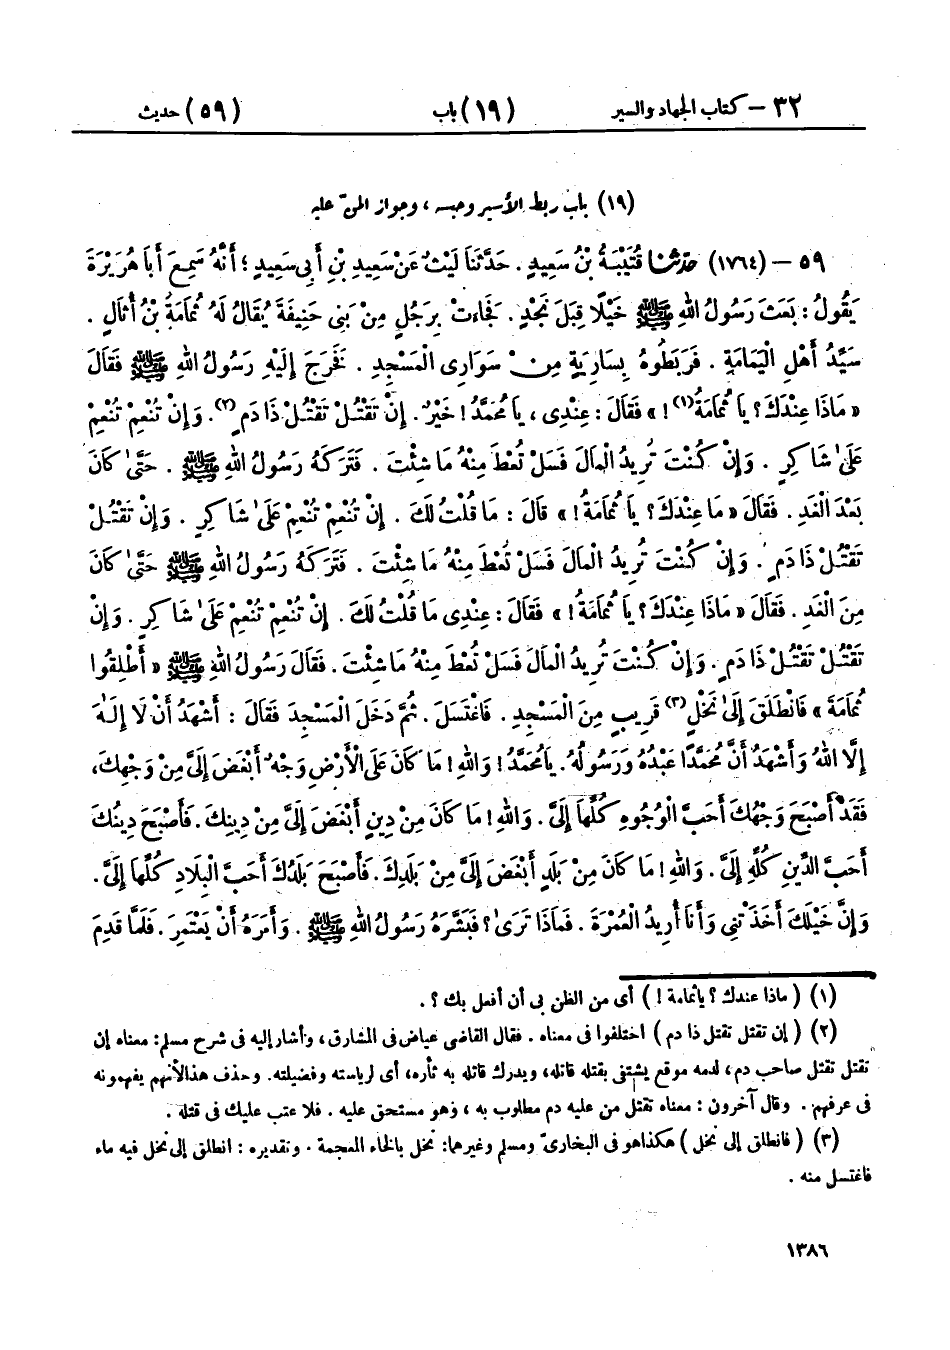 ٣٢ – كتاب الجهاد والسير (١٩) باب (٥٩) حديث
(١٩) باب ربط الأسير وحبسه ، وجواز المنّ عليه
٥٩ – (١٧٦٤) حَدَّثَنَا قُتَيْبَةُ بْنُ سَعِيدٍ . حَدَّثَنَا لَيْثٌ عَنْ سَعِيدِ بْنِ أَبِي سَعِيدٍ ؛ أَنَّهُ سَمِعَ أَبَا هُرَيْرَةَ
يَقُولُ : بَعَثَ رَسُولُ اللهِ ﷺ خَيْلًا قِبَلَ نَجْدٍ . فَجَاءَتْ بِرَجُلٍ مِنْ بَنِي حَنِيفَةَ يُقَالُ لَهُ ثُمَامَةُ بْنُ أُثَالٍ .
سَيِّدُ أَهْلِ الْيَمَامَةِ . فَرَبَطُوهُ بِسَارِيَةٍ مِنْ سَوَارِى الْمَسْجِدِ . فَخَرَجَ إِلَيْهِ رَسُولُ اللهِ ﷺ فَقَالَ
« مَاذَا عِنْدَكَ ؟ يَا ثُمَامَةُ(١) ! » فَقَالَ : عِنْدِى ، يَا مُحَمَّدُ ! خَيْرٌ . إِنْ تَقْتُلْ تَقْتُلْ ذَا دَمٍ(٢) . وَإِنْ تُنْعِمْ تُنْعِمْ
عَلَىٰ شَاكِرٍ . وَإِنْ كُنْتَ تُرِيدُ الْمَالَ فَسَلْ تُعْطَ مِنْهُ مَا شِئْتَ . فَتَرَكَهُ رَسُولُ اللهِ ﷺ . حَتَّىٰ كَانَ
بَعْدَ الْغَدِ . فَقَالَ « مَا عِنْدَكَ ؟ يَا ثُمَامَةُ ! » قَالَ : مَا قُلْتُ لَكَ . إِنْ تُنْعِمْ تُنْعِمْ عَلَىٰ شَاكِرٍ . وَإِنْ تَقْتُلْ
تَقْتُلْ ذَا دَمٍ . وَإِنْ كُنْتَ تُرِيدُ الْمَالَ فَسَلْ تُعْطَ مِنْهُ مَا شِئْتَ . فَتَرَكَهُ رَسُولُ اللهِ ﷺ حَتَّىٰ كَانَ
مِنَ الْغَدِ . فَقَالَ « مَاذَا عِنْدَكَ ؟ يَا ثُمَامَةُ ! » فَقَالَ : عِنْدِى مَا قُلْتُ لَكَ . إِنْ تُنْعِمْ تُنْعِمْ عَلَىٰ شَاكِرٍ . وَإِنْ
تَقْتُلْ تَقْتُلْ ذَا دَمٍ . وَإِنْ كُنْتَ تُرِيدُ الْمَالَ فَسَلْ تُعْطَ مِنْهُ مَا شِئْتَ . فَقَالَ رَسُولُ اللهِ ﷺ « أَطْلِقُوا
ثُمَامَةَ » فَانْطَلَقَ إِلَىٰ نَخْلٍ(٣) قَرِيبٍ مِنَ الْمَسْجِدِ . فَاغْتَسَلَ . ثُمَّ دَخَلَ الْمَسْجِدَ فَقَالَ : أَشْهَدُ أَنْ لَا إِلَـٰهَ
إِلَّا اللهُ وَأَشْهَدُ أَنَّ مُحَمَّدًا عَبْدُهُ وَرَسُولُهُ . يَا مُحَمَّدُ ! وَاللهِ ! مَا كَانَ عَلَى الْأَرْضِ وَجْهٌ أَبْغَضَ إِلَىَّ مِنْ وَجْهِكَ ،
فَقَدْ أَصْبَحَ وَجْهُكَ أَحَبَّ الْوُجُوهِ كُلِّهَا إِلَىَّ . وَاللهِ ! مَا كَانَ مِنْ دِينٍ أَبْغَضَ إِلَىَّ مِنْ دِينِكَ . فَأَصْبَحَ دِينُكَ
أَحَبَّ الدِّينِ كُلِّهِ إِلَىَّ . وَاللهِ ! مَا كَانَ مِنْ بَلَدٍ أَبْغَضَ إِلَىَّ مِنْ بَلَدِكَ . فَأَصْبَحَ بَلَدُكَ أَحَبَّ الْبِلَادِ كُلِّهَا إِلَىَّ .
وَإِنَّ خَيْلَكَ أَخَذَتْنِى وَأَنَا أُرِيدُ الْعُمْرَةَ . فَمَاذَا تَرَىٰ ؟ فَبَشَّرَهُ رَسُولُ اللهِ ﷺ . وَأَمَرَهُ أَنْ يَعْتَمِرَ . فَلَمَّا قَدِمَ
(١) ( ماذا عندك ؟ يا ثمامة ! ) أى من الظن بى أن أفعل بك ؟ .
(٢) ( إن تقتل تقتل ذا دم ) اختلفوا فى معناه . فقال القاضى عياض فى المشارق ، وأشار إليه فى شرح مسلم : معناه إن
تقتل تقتل صاحب دم ، لدمه موقع يشتفى بقتله قاتله ، ويدرك قاتله به ثأره ، أى لرياسته وفضيلته . وحذف هذا لأنهم يفهمونه
فى عرفهم . وقال آخرون : معناه تقتل من عليه دم مطلوب به ، وهو مستحق عليه . فلا عتب عليك فى قتله .
(٣) ( فانطلق إلى نخل ) هكذا هو فى البخارىّ ومسلم وغيرهما : نخل بالخاء المعجمة . وتقديره : انطلق إلى نخل فيه ماء
فاغتسل منه .
١٣٨٦